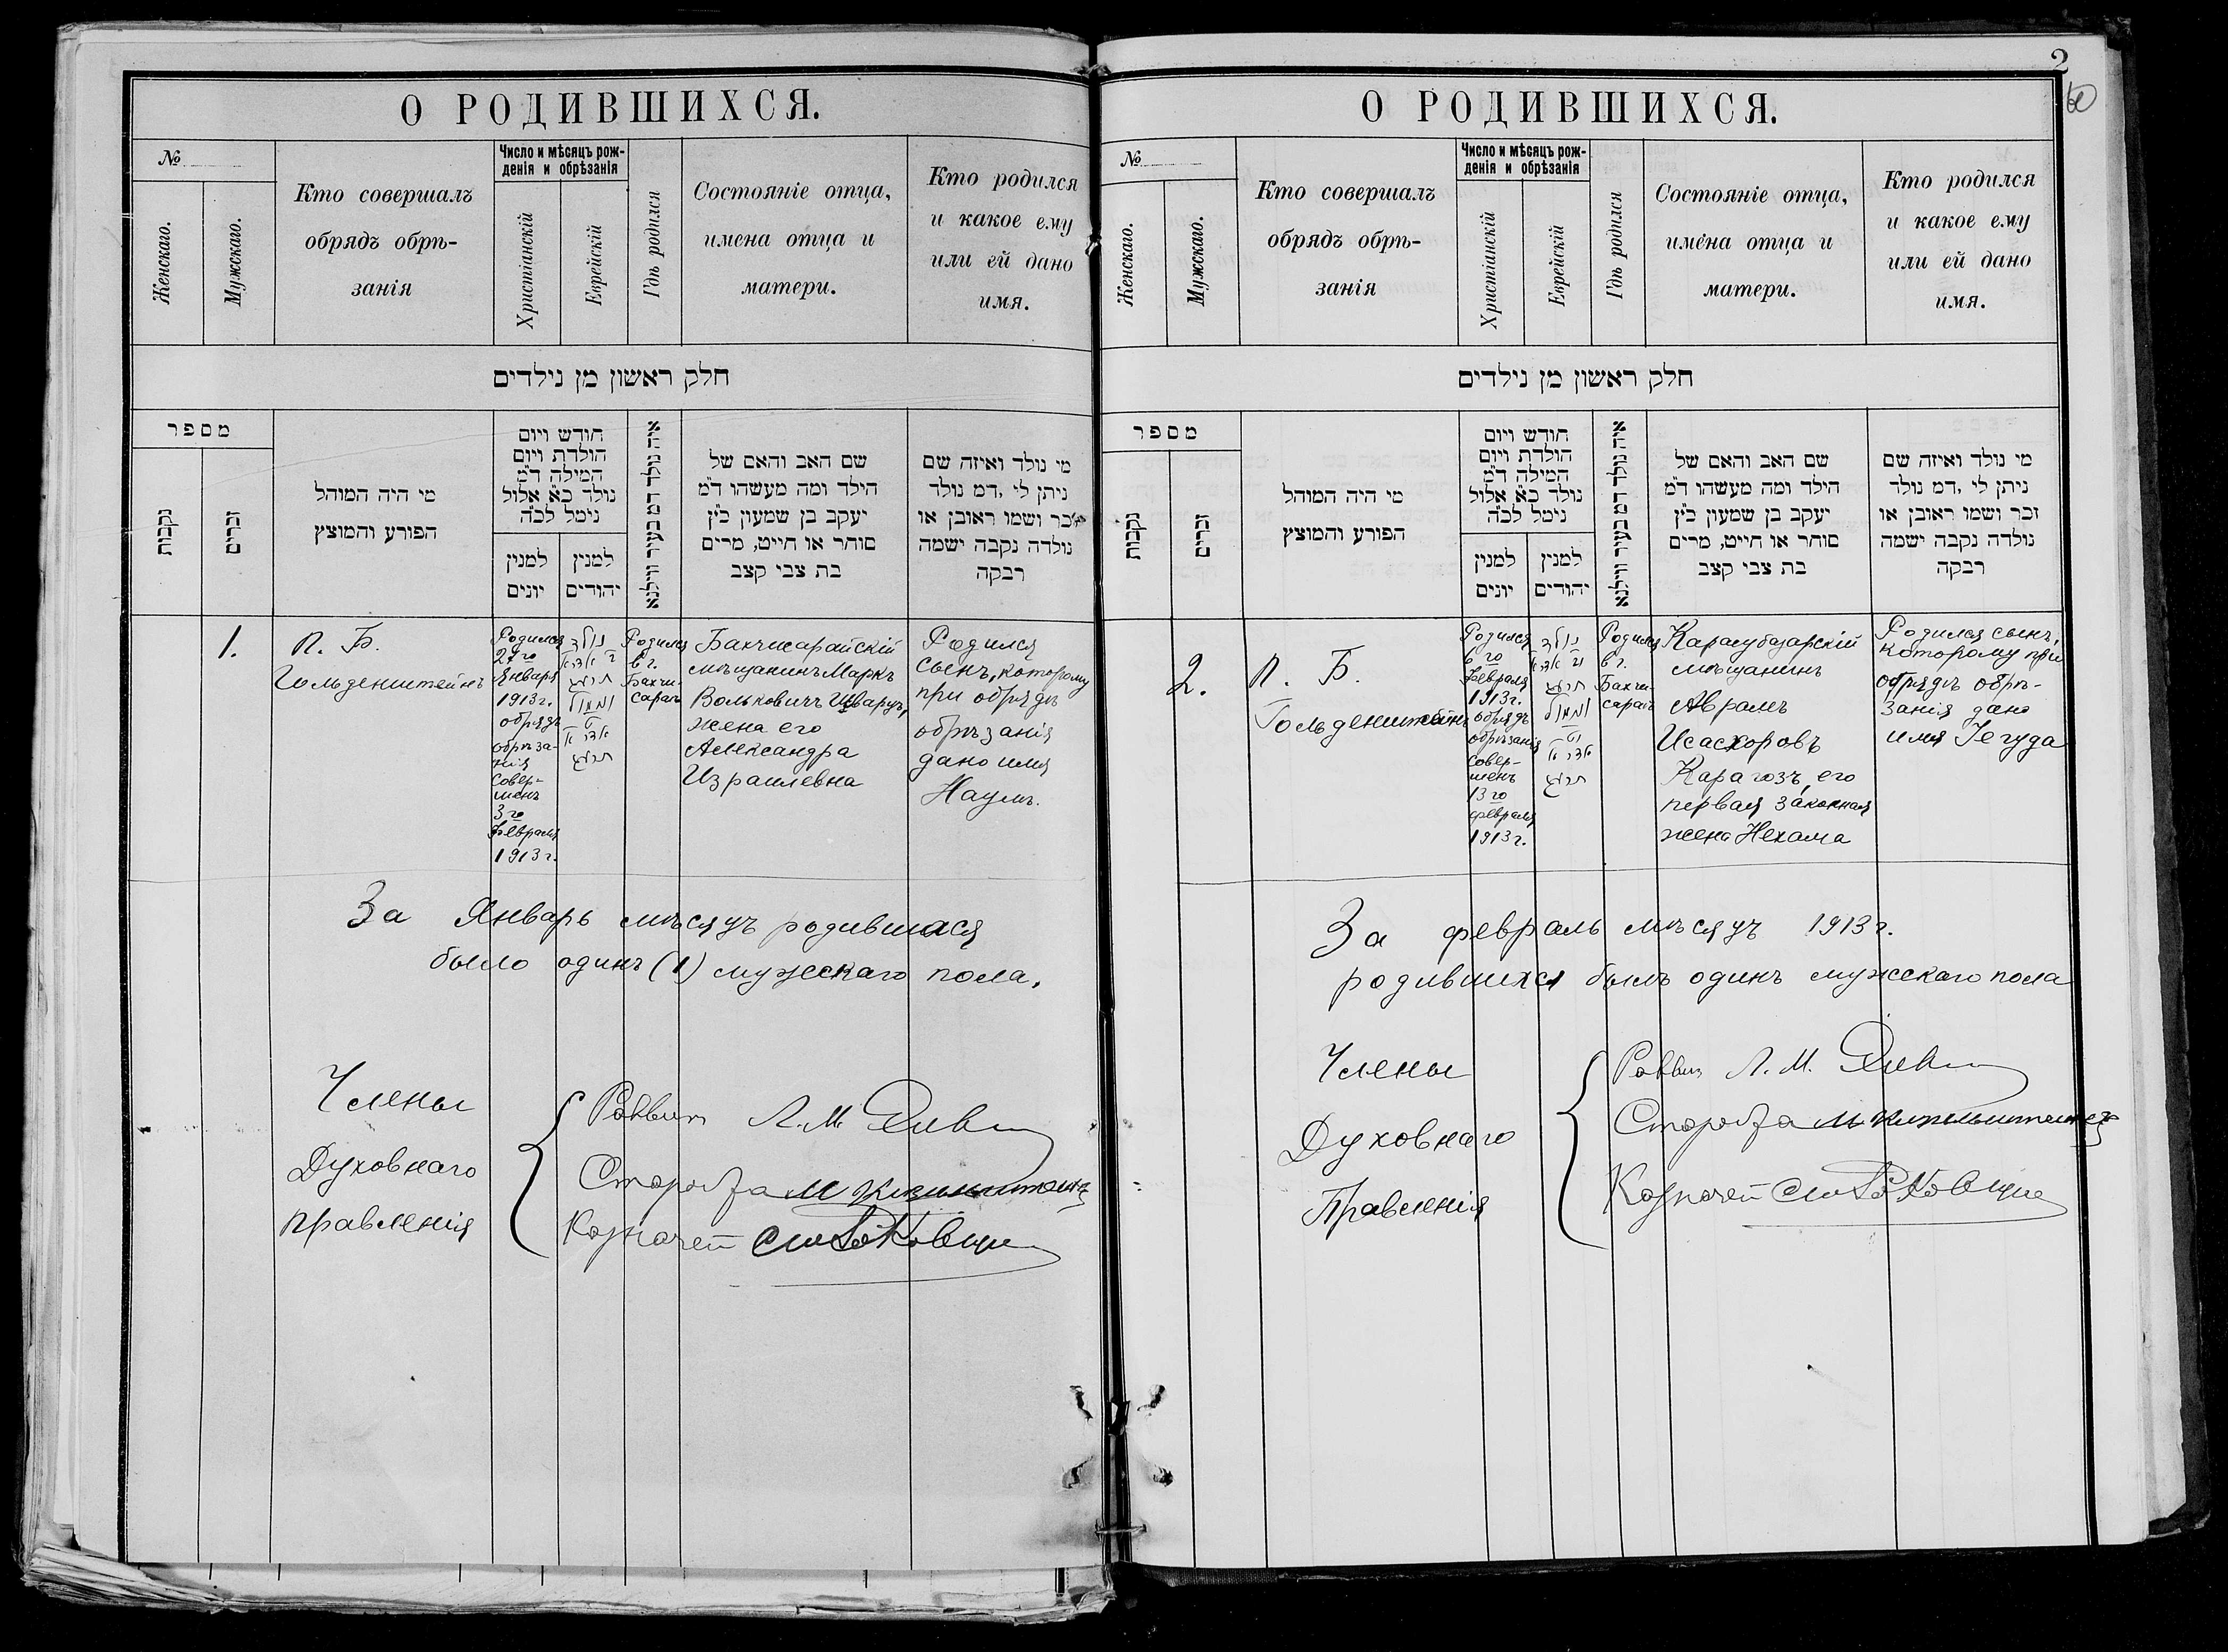 О РОДИВШИХСЯ.
№
Женскаго.
Мужскаго.
Кто совершалъ
обрядъ обрѣ-
занія
Число и мѣсяцъ рож-
денія и обрѣзанія
Христіанскій
Еврейскій
Гдѣ родился
Состояніе отца,
имена отца и
матери.
Кто родился
и какое ему
или ей дано
имя.
חלק ראשון מן נילדים
מספר
נקבות
זכרים
מי היה המוהל
הפורע והמוצץ
חודש ויום
הולדת ויום
המילה ד״מ
נולד כ״א אלול
נימל לכ״ה
למנין
יונים
למנין
יהודים
איה נולד דמ בעיר ווילנא
שם האב והאם של
הילד ומה מעשהו ד״מ
יעקב בן שמעון כ״ץ
סוחר או חייט, מרים
בת צבי קצב
מי נולד ואיזה שם
ניתן לי ,דמ נולד
זכר ושמו ראובן או
נולדה נקבה ישמה
רבקה
1.
П. Б.
Гольденштейнъ
Родился
27го
Января
1913г.
обрядъ
обрѣза-
нія
совер-
шенъ
3го
Февраля
1913г.
נולד
אדר א
תרעג
ונמול
אדר א
תרעג
Родился
в г.
Бахчи-
сараѣ
Бахчисарайскій
мѣщанинъ Маркъ
Вольковичъ Шварцъ,
жена его
Александра
Израилевна
Родился
сынъ, которому
при обрядѣ
обрѣзанія
дано имя
Наумъ.
За Январь мѣсяцъ родившихся
было одинъ (1) мужескаго пола.
Члены
Духовнаго
правленія
Раввин Л. М.
Староста М
Казначей
2
О РОДИВШИХСЯ.
№
Женскаго.
Мужскаго.
Кто совершалъ
обрядъ обрѣ-
занія
Число и мѣсяцъ рож-
денія и обрѣзанія
Христіанскій
Еврейскій
Гдѣ родился
Состояніе отца,
имена отца и
матери.
Кто родился
и какое ему
или ей дано
имя.
חלק ראשון מן נילדים
מספר
נקבות
זכרים
מי היה המוהל
הפורע והמוצץ
חודש ויום
הולדת ויום
המילה ד״מ
נולד כ״א אלול
נימל לכ״ה
למנין
יונים
למנין
יהודים
איה נולד דמ בעיר ווילנא
שם האב והאם של
הילד ומה מעשהו ד״מ
יעקב בן שמעון כ״ץ
סוחר או חייט, מרים
בת צבי קצב
מי נולד ואיזה שם
ניתן לי ,דמ נולד
זכר ושמו ראובן או
נולדה נקבה ישמה
רבקה
2.
П. Б.
Гольденштейнъ
Родился
6го
Февраля
1913г.
обрядъ
обрѣзанія
совер-
шенъ
13го
февраля
1913г.
נולד
אדר א
תרעג
ונמול
אדר א
תרעג
Родился
в г.
Бахчи-
сараѣ
Карасубазарскій
мѣщанинъ
Аврамъ
Исасхоровъ
Карагозъ, его
первая законная
жена Нехама
Родился сынъ,
которому при
обрядѣ обрѣ-
занія дано
имя Іегуда
За февраль мѣсяцъ 1913г.
родившихся былъ одинъ мужескаго пола
Члены
Духовнаго
Правленія
Раввин Л. М.
Староста М
Казначей